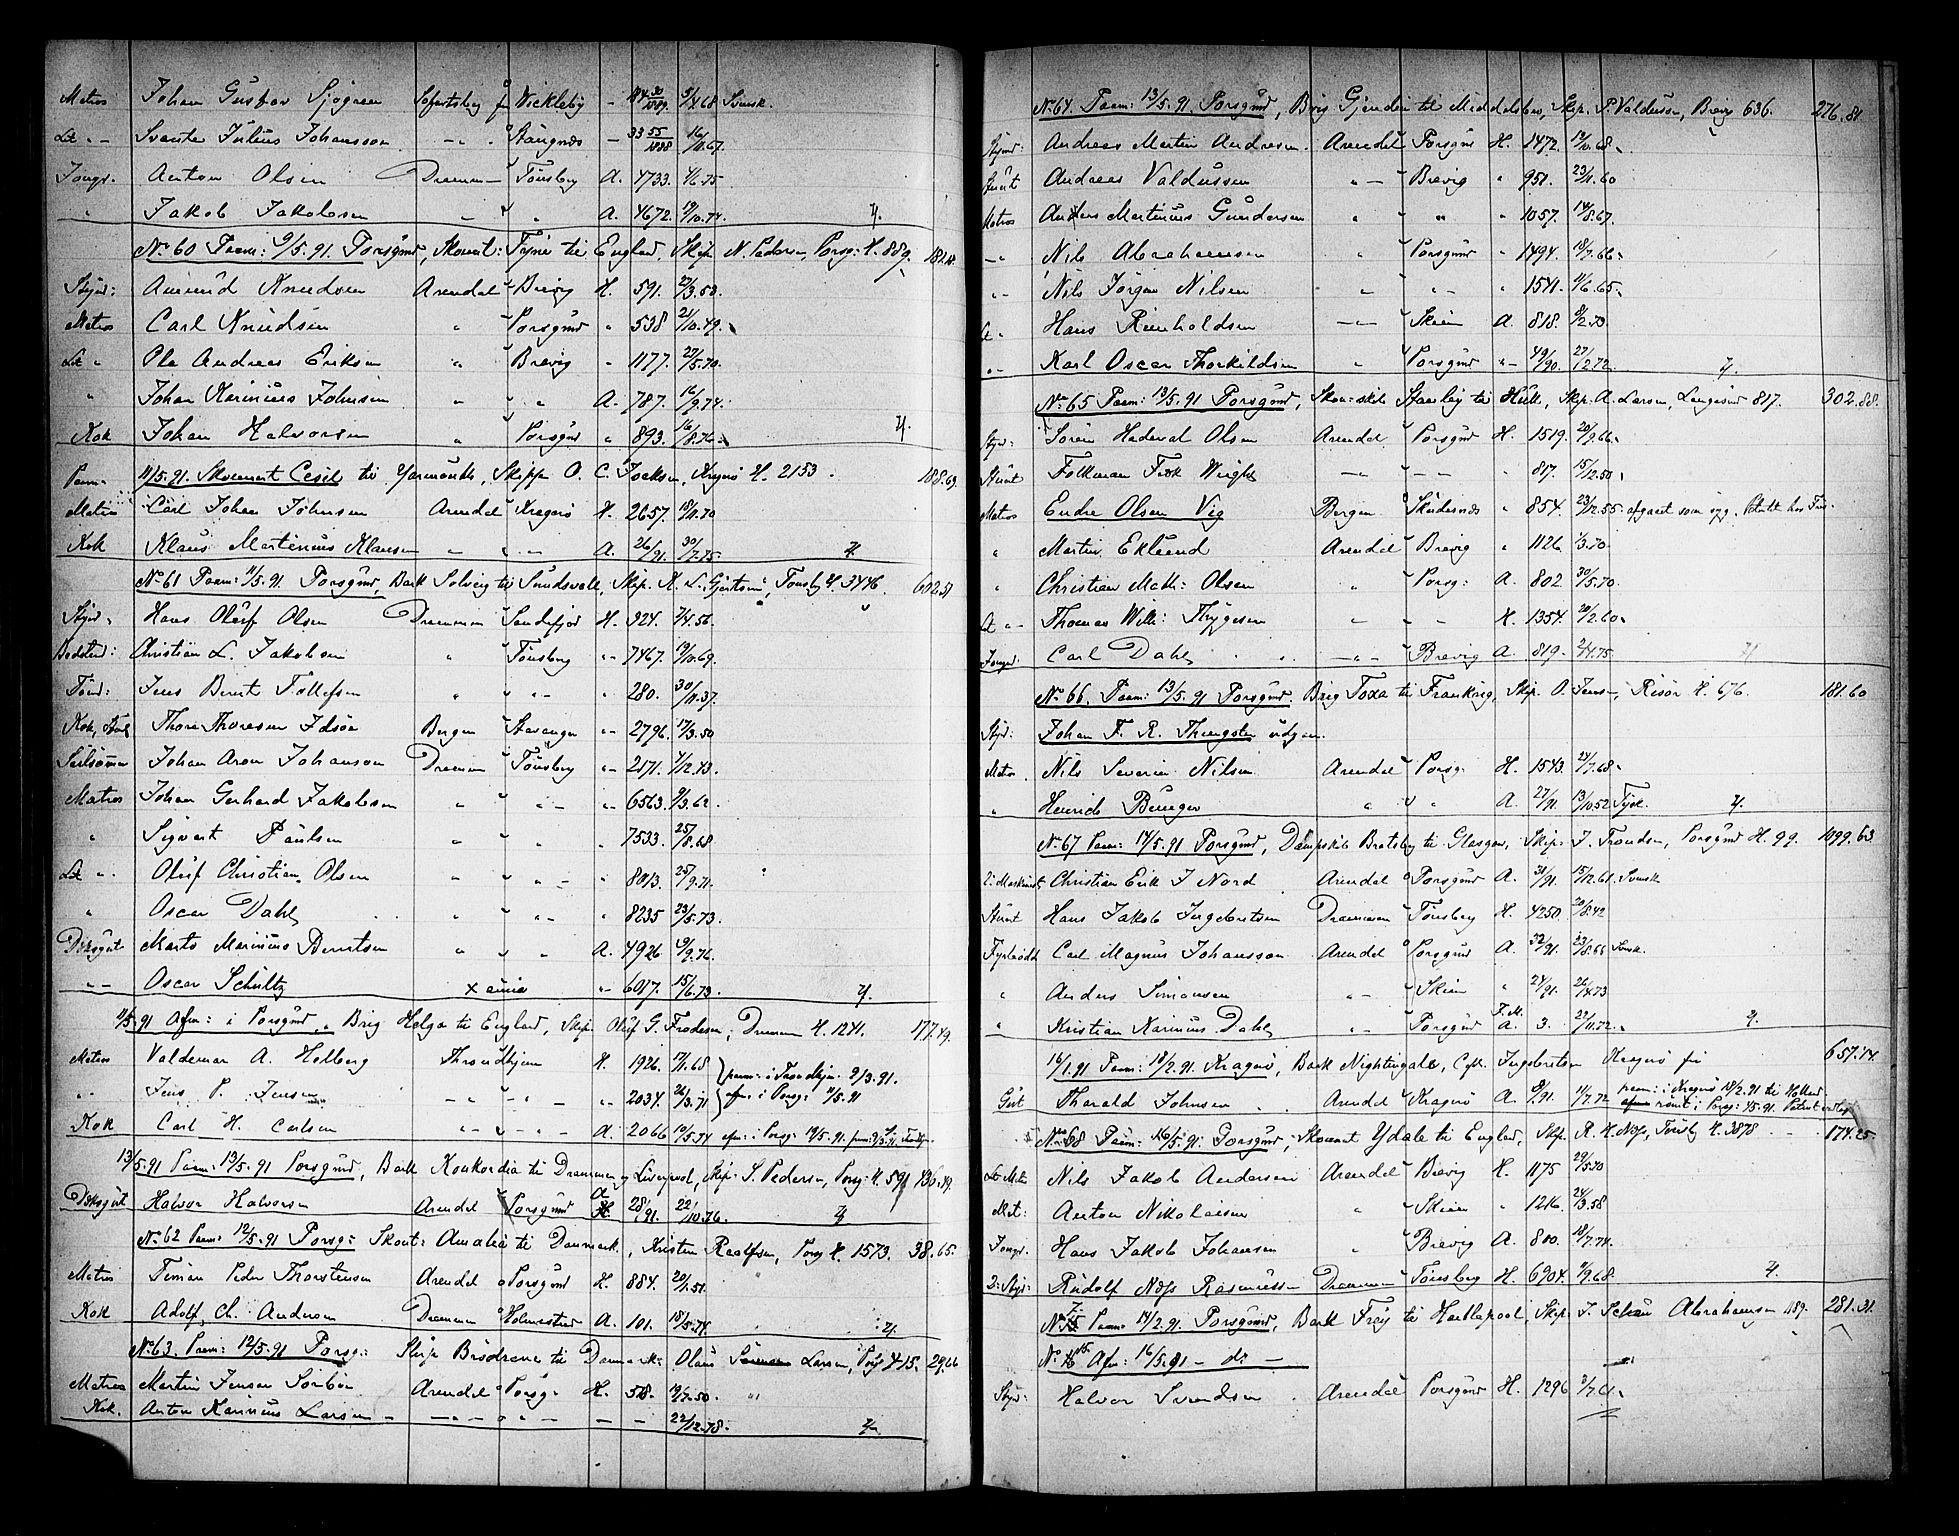 Matros Johan Gustav Sjögren Wickleby 9/4 68 Svensk
Let. - Svante Julius Johansson - " - 33 55/1888 16/11.67.
Jungs. Anton Olsen Drammen Tönsberg A. 4733. 4/6.75
" Jakob Jakobsen " " A. 4672. 19/10.74.
No 60 Paam: 9/5.91. Porsgrund, Skonnt: Fyrie til England, Skip. N. Pedersen, Porsg: H. 889. 182.
Styrm: Aumund Knudsen Arendal Brevig H. 591. 27/3.53.
Matros Carl Knudsen " Porsgrund " 538 21/10.49.
Let " Ole Andreas Eriksen " Brevig " 1177. 27/5.70.
" Johan Karinius Johnsen " " A. 787. 16/9.74.
Kok Johan Halvorsen " Porsgrund " 893. 16/8.76.
Paam: 11/5.91. Skonnert Cecil til Yarmouth, Skipper O. C. Isaksen, Kragerö H. 2153. 188.69
Matros Carl Johan Johnsen Arendal Kragerö H. 2657. 18/11.70
Kok Klaus Martinius Klausen " " - A. 26/91. 30/7.75.
No 61 Paam: 11/5.91 Porsgrund, Bark Solveig til Sundsvall, Skip. K. L. Gjertsen, Tønsbg H. 3446. 602.51
Styrm. Hans Oluf Olsen Drammen Sandefjord H. 924. 7/4.56.
Christian L. Jakobsen " Tönsberg " 7467. 19/10.69.
Töm: Jens Bernt Tollefsen " " - " 280. 30/11.37.
Kok, Stuert Thore Thoresen Idsöe Bergen Stavanger " 2796. 17/3.50
Seilsömmer Johan Aron Johanson Drammen Tönsberg " 2171. 7/12.43.
Matros Johan Gerhard Jakobsen " " - " 6563. 9/3.62.
" Sigvart Paulsen " " " 7533. 25/8.68
Let " Oluf Christian Olsen " " - " 8013. 25/9.71.
" Oscar Dahl " " - " 8235 23/5.73.
Dæksgut Marts Marinius Berntsen " " " A. 4926. 19/9.76.
" - Oscar Schultz Xania " 6017. 15/6.73.
11/5.91 Afm: i Porsgrund, Brig Helga til England, Skip. Oluf G. Frodesen, Drammen H. 1241. 177.49.
Matros Valdemar A. Holberg Throndhjem H. 1926. 17/11.68 paam: i Trondhjem 9/3.91.
" - Jens P. Jensen - " - " - " 2034. 26/3.71 afm: i Porsg: 11/5.91
Kok Carl H. Carlsen - " - " - A. 2066 10/5.74 afm: i Porsg:
13/5.91 Paam: 13/5.91 Porsgrund, Bark Konkordia til Drammen og Liverpool, Skip: S. Pedersen, Porsg: H. 591 436.49.
Dæksgut Halvor Halvorsen Arendal Porsgrund A 28/91. 22/10.76.
No 62 Paam: 12/5.91 Porsg: Skont: Amalia til Danmark, Kristen Raalfsen, Porsg H. 1573. 38.65.
Matros Timan Peder Thorstensen Arendal Porsgrund H. 884. 20/1.51.
Kok Adolf Ch. Andersen Drammen Holmestrand A. 101. 18/5.74.
No 63. Paam: 12/5.91 Porsg: Skip Brödrene til Danmark: Olaus Larsen, Porsg H 415. 29.66
Matros Martin Jensen Sörböe Arendal Porsg: H. 578. 19/7.50. "
Kok. Anton Karinius Larsen - - " - " - - - 22/12.78.
No 64. Paam: 13/5.91. Porsgrund, Brig Gjendin til Middelsbro, Skip. P. Valdusen, Brevig 636. 276.81
Styrm: Andreas Martin Andresen. Arendal Porsgrs H. 1472. 12/10.68.
Stuert Andreas Valdussen " - Brevig " 951. 23/11.60
Matros Anders Martinius Gundersen " " " 1057. 14/8.67.
- " Nils Abrahamsen " Porsgrund " 1494. 18/7.66.
" - Nils Jörgen Nilsen " " - " 1541. 11/6.65.
Let " Hans Reinholdsen - " - Skien A. 818. 8/2.70.
" - Karl Oscar Thorkildsen " Porsgrund " - 49/90. 27/12.72.
No 65 Paam: 13/5.91 Porsgrund, Skon: skib Staerley til Hull, Skip. A. Larsen, Langesund 817. 302.88.
Styr: Sören Hadeval Olsen Arendal Porsgrund H. 1519. 20/9.66.
Stuert Folkman Fisk Wright - " - - " - " 817. 15/12.50.
Matros Endre Olsen Vig Bergen Skudesnes " 854. 23/12.55. afgaaet som syg.
" Martin Eklund Arendal Brevig " 1126. 1/3.70.
" Christian Math: Olsen " Porsg: A. 802 30/5.70.
Let " - Thomas Wilh: Thygesen " " H. 1354. 20/2.60.
Jungm: Carl Dahl - " - Brevig A. 819. 2/4.75.
No 66. Paam: 13/5.91 Porsgrund. Brig Toxa til Frankrig, Skip. O. Jens-, Risör H. 676. 181.60
Styr: Johan F. R. Thungsten udgm.
Matros Nils Severin Nilsen Arendal Porsg. H. 1543. 24/7.68.
" Henrich Bünger " " A. 27/91. 13/10.52. Tysk.
No 67 Paam: 14/5.91 Porsgrund, Dampskib Bratsberg til Glasgow, Skip: J. Trondsen, Porsgrund H. 99. 1199.63
2: Maskinist Christian Erik J Nord Arendal Porsgrund A. 31/91. 15/12.61. Svensk
Stuert Hans Jakob Ingebretsen Drammen Tönsberg H. 4250. 20/8.42
Fyrbödder Carl Magnus Johansson Arendal Porsgrund A. 32/91. 23/8.66 Svensk.
" Anders Simonsen " - Skien " 24/91. 26/4.73
" Kristian Karinius Dahl " - Porsgrund F.M. A. 3. 22/11.72.
16/1.91 Paam: 18/2.91. Kragerö, Bark Nightingale, Capt. Ingebretsen Kragerö fri 657.14.
Gut Tharald Johnsen Arendal Kragerö A. 9/91. 11/7.72 paam: i Kragerö 18/2.91 til Holland rømt i Porsg: 15/5.91.
No 68 Paam: 16/5.91. Porsgrund, Skonnert Ydale til England, Skip. R. H. Næss, Tönsberg H. 3878 - 174.25.
Let Mat: Nils Jakob Andersen Arendal Brevig H. 1175 29/5.70
Mat: Anton Nikolaisen " Skien " 1216. 24/3.58
Jungm. Hans Jakob Johansen " Brevig A. 800. 18/7.74.
2: Styr: Rudolf Næss Rasmussen Drammen Tönsberg H. 6904. 7/9.68.
No 75 Paam: 14/2.91. Porsgrund, Bark Freij til Hartlepool, Skip. J. Schau Abrahamsen 1189. 281.31.
No 16 Afm: 16/5.91 - do -
Styr: Halvor Svendsen Arendal Porsgrund H. 1296 8/7.61.